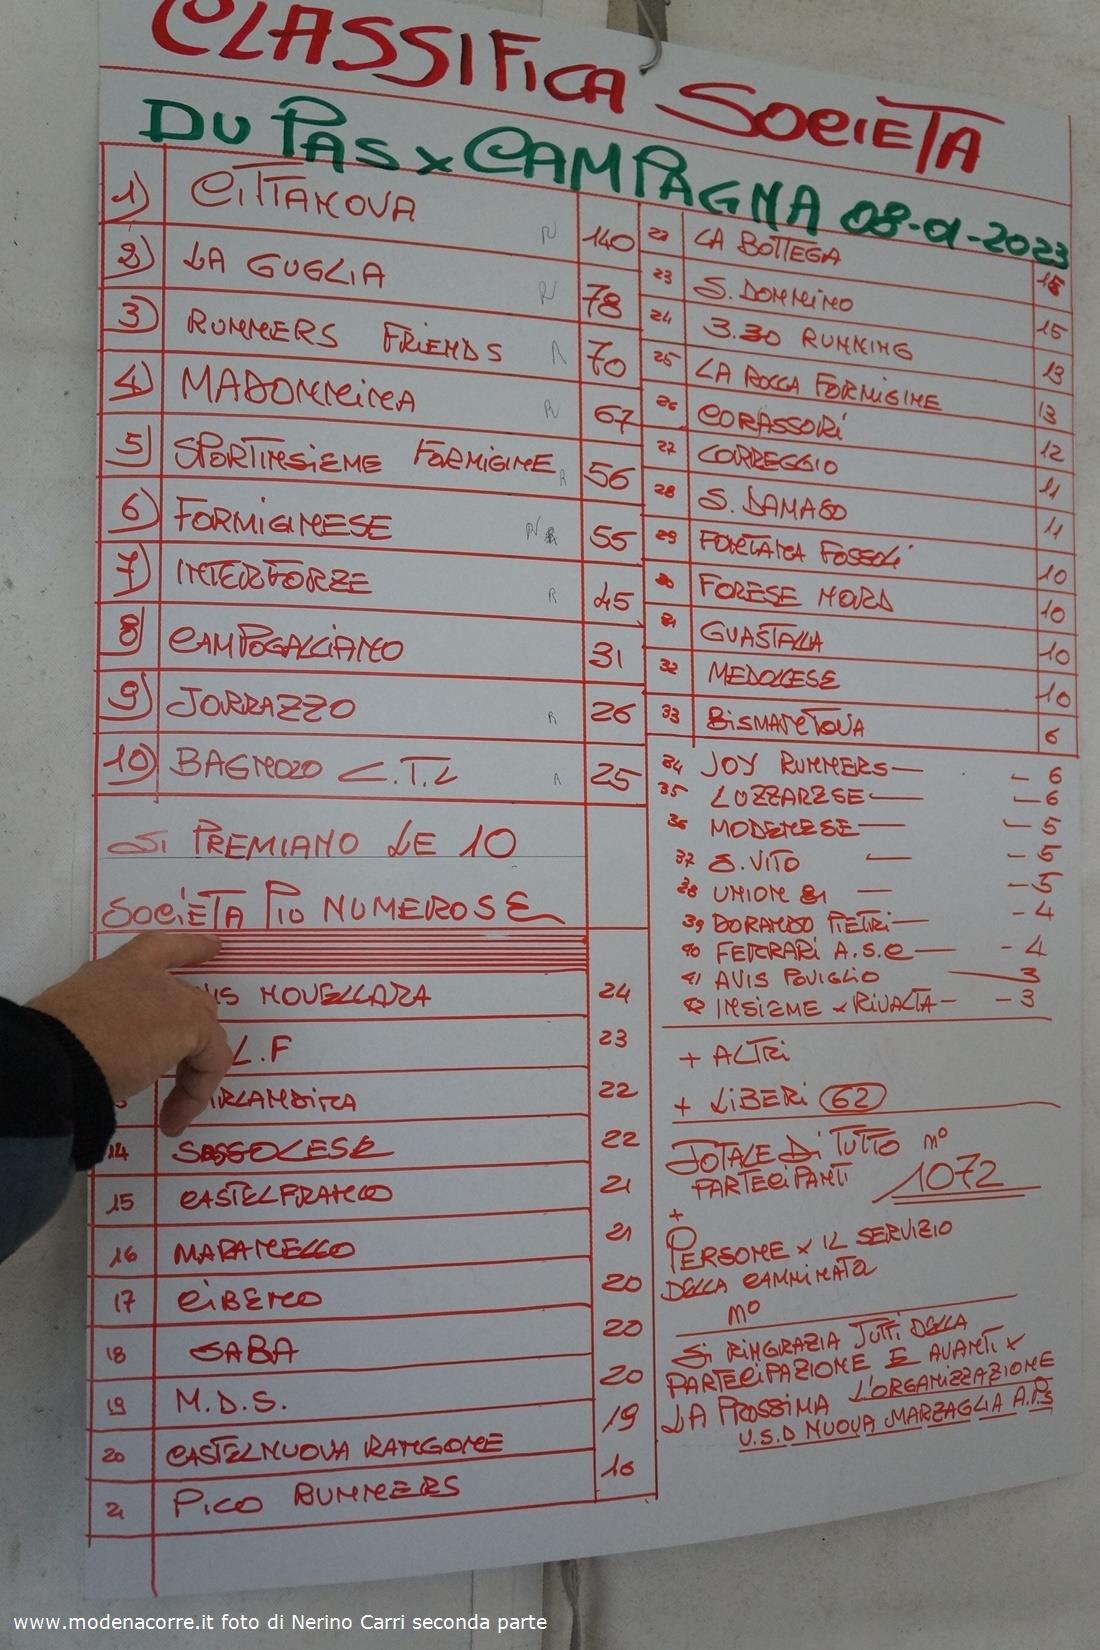 CLASSIFICA SOCIETA
DU PAS x CAMPAGNA 08-01-2023
1) CITTANOVA 140
2) LA GUGLIA 78
3) RUNNERS FRIENDS 70
4) MADONNINA 67
5) SPORTINSIEME FORMIGINE 56
6) FORMIGINESE 55
7) INTERFORZE 45
8) CAMPOGALLIANO 31
9) TORRAZZO 26
10) BAGNOLO C.T.L 25
SI PREMIANO LE 10
SOCIETA PIU NUMEROSE
NOVELLARA 24
L.F 23
22
14 SASSOLESE 22
15 CASTELFRANCO 21
16 MARANELLO 21
17 CIBENO 20
18 SABA 20
19 M.D.S. 20
20 CASTELNUOVA RANGONE 19
21 PICO RUNNERS 16
22 LA BOTTEGA
23 S. DONNINO 15
24 3.30 RUNNING 13
25 LA ROCCA FORMIGINE 13
26 CORASSORI 12
27 CORREGGIO 11
28 S. DAMASO 11
29 FONTANA FOSSOLI 10
30 FORESE NORD 10
31 GUASTALLA 10
32 MEDOLESE 10
33 BISMANTOVA 6
34 JOY RUNNERS — - 6
35 LUZZARESE — - 6
36 MODENESE — - 5
37 S. VITO — - 5
38 UNION 81 — - 5
39 DORANDO PIETRI — - 4
40 FERRARI A.S.C — - 4
41 AVIS POVIGLIO — 3
42 INSIEME x RIVALTA - - 3
+ ALTRI
+ LIBERI 62
TOTALE DI TUTTO N°
PARTECIPANTI 1072
+
PERSONE x IL SERVIZIO
DELLA CAMMINATA
N°
SI RINGRAZIA TUTTI DELLA
PARTECIPAZIONE E AVANTI x
LA PROSSIMA L'ORGANIZZAZIONE
U.S.D NUOVA MARZAGLIA A.P.S
www.modenacorre.it foto di Nerino Carri seconda parte